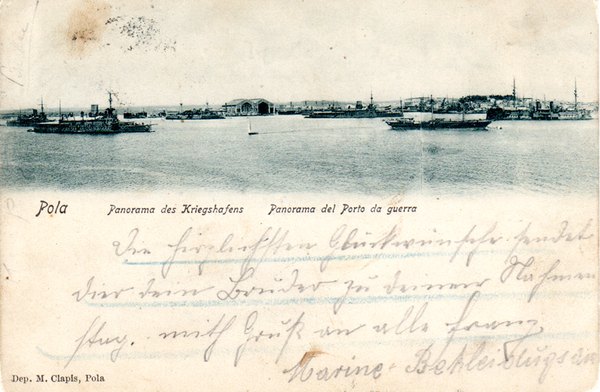 Pola Panorama des Kriegshafens Panorama del Porto da guerra
Die herzlichsten Glückwünsche sendet
dier dein Bruder zu deinem Nahmens
stag. mith Gruß an alle Franz
Marine-Bekleidungsam
Dep. M. Clapis, Pola